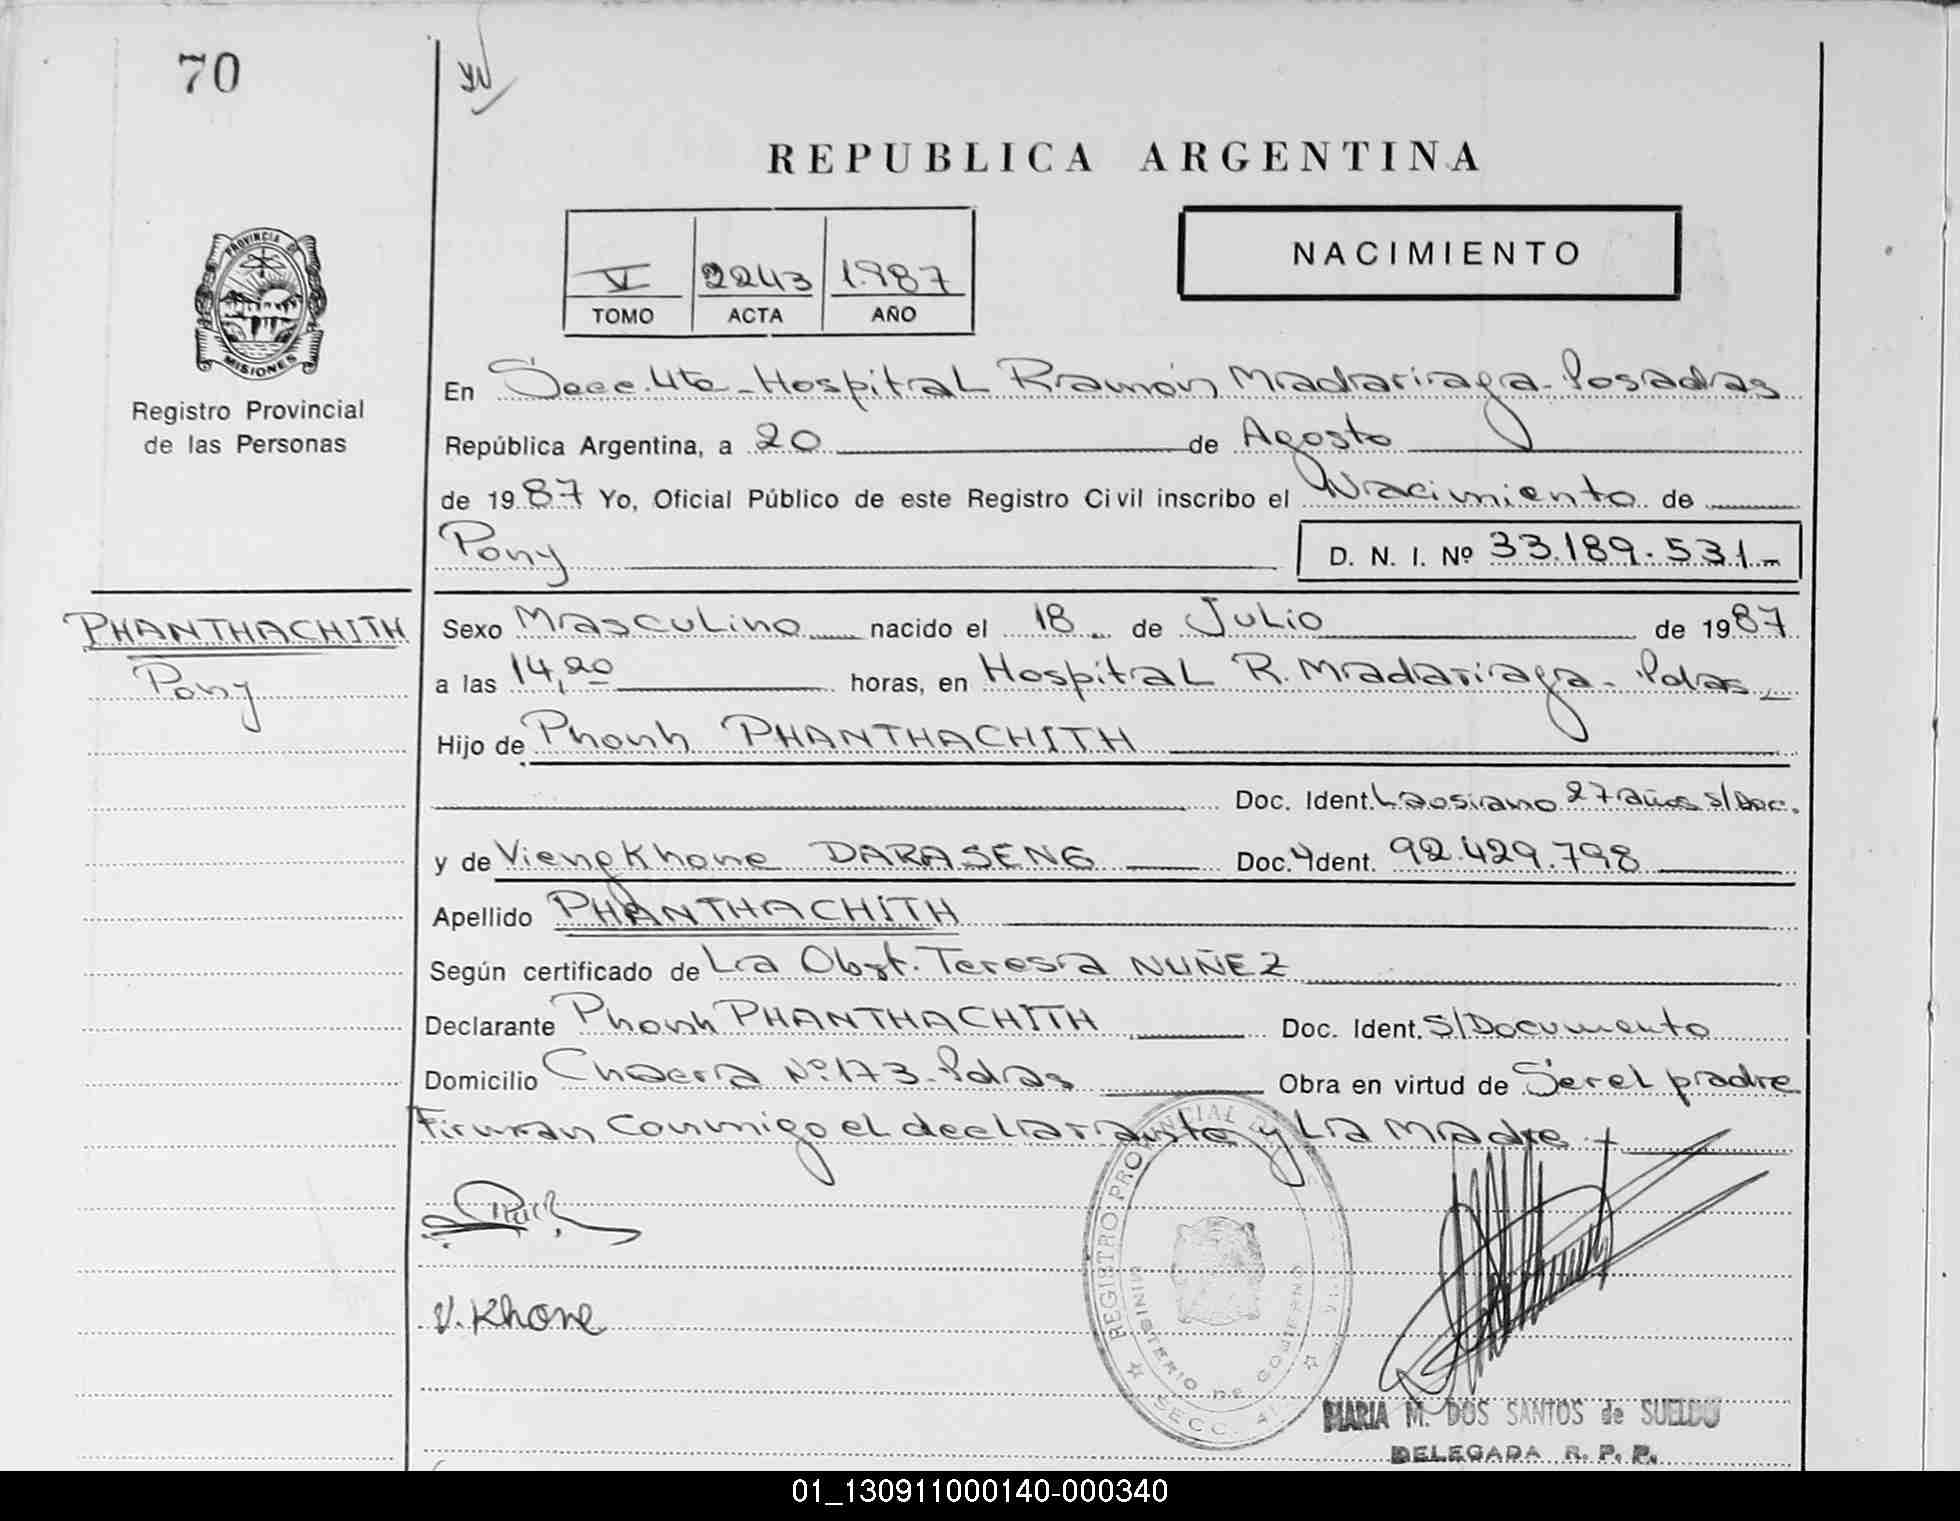 70
REPUBLICA ARGENTINA
PROVINCIA DE
MISIONES
Registro Provincial
de las Personas
V 2243 1.987
TOMO ACTA AÑO
NACIMIENTO
En Secc. 4ta - Hospital Ramón Madariaga - Posadas
República Argentina, a 20 de Agosto
de 1987 Yo, Oficial Público de este Registro Civil inscribo el Nacimiento de
Pony
D. N. I. Nº 33.189.531
PHANTHACHITH
Pony
Sexo Masculino nacido el 18 de Julio de 1987
a las 14,20 horas, en Hospital R. Madariaga - Pdas
Hijo de Phonh PHANTHACHITH
Doc. Ident. Laosiano 27 años s/Doc.
y de Viengkhone DARASENG Doc. Ident. 92.429.798
Apellido PHANTHACHITH
Según certificado de La Obst. Teresa NUÑEZ
Declarante Phonh PHANTHACHITH Doc. Ident. S/Documento
Domicilio Chacra Nº 173 - Pdas Obra en virtud de Ser el padre
Firman conmigo el declarante y La Madre
V. Khone
REGISTRO PROVINCIAL
MINISTERIO DE GOBIERNO
SECC. 4
MARIA M. DOS SANTOS de SUELDO
DELEGADA R. P. P.
01_130911000140-000340